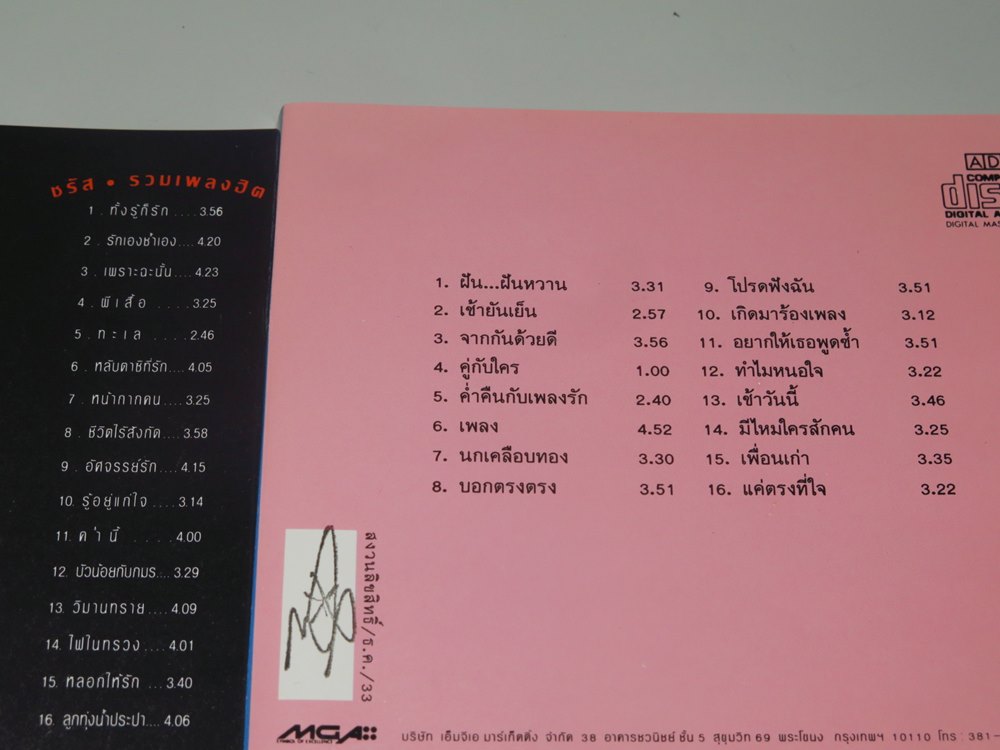 ชรัส • รวมเพลงฮิต
1 . ทั้งรู้ก็รัก ....3.56
2 . รักเองช้ำเอง....4.20
3 . เพราะฉะนั้น....4.23
4 . ผีเสื้อ ....3.25
5 . ทะเล ....2.46
6 . หลับตาซิที่รัก....4.05
7 . หน้ากากคน....3.25
8 . ชีวิตไร้สังกัด....3.58
9 . อัศจรรย์รัก....4.15
10. รู้อยู่แก่ใจ ....3.14
11. ค่ำนี้ ....4.00
12. บัวน้อยกับภมร....3.29
13. วิมานทราย....4.09
14. ไฟในทรวง....4.01
15. หลอกให้รัก ...3.40
16. ลูกทุ่งน้ำประปา....4.06
COMP
dis
DIGITAL A
DIGITAL MAS
1. ฝัน...ฝันหวาน 3.31
2. เช้ายันเย็น 2.57
3. จากกันด้วยดี 3.56
4. คู่กับใคร 1.00
5. ค่ำคืนกับเพลงรัก 2.40
6. เพลง 4.52
7. นกเคลือบทอง 3.30
8. บอกตรงตรง 3.51
9. โปรดฟังฉัน 3.51
10. เกิดมาร้องเพลง 3.12
11. อยากให้เธอพูดซ้ำ 3.51
12. ทำไมหนอใจ 3.22
13. เช้าวันนี้ 3.46
14. มีไหมใครสักคน 3.25
15. เพื่อนเก่า 3.35
16. แค่ตรงที่ใจ 3.22
สงวนลิขสิทธิ์/ธ.ค./33
MGA
SYMBOL OF EXCELLENCE
บริษัท เอ็มจีเอ มาร์เก็ตติ้ง จำกัด 38 อาคารชวนิชย์ ชั้น 5 สุขุมวิท 69 พระโขนง กรุงเทพฯ 10110 โทร : 381-